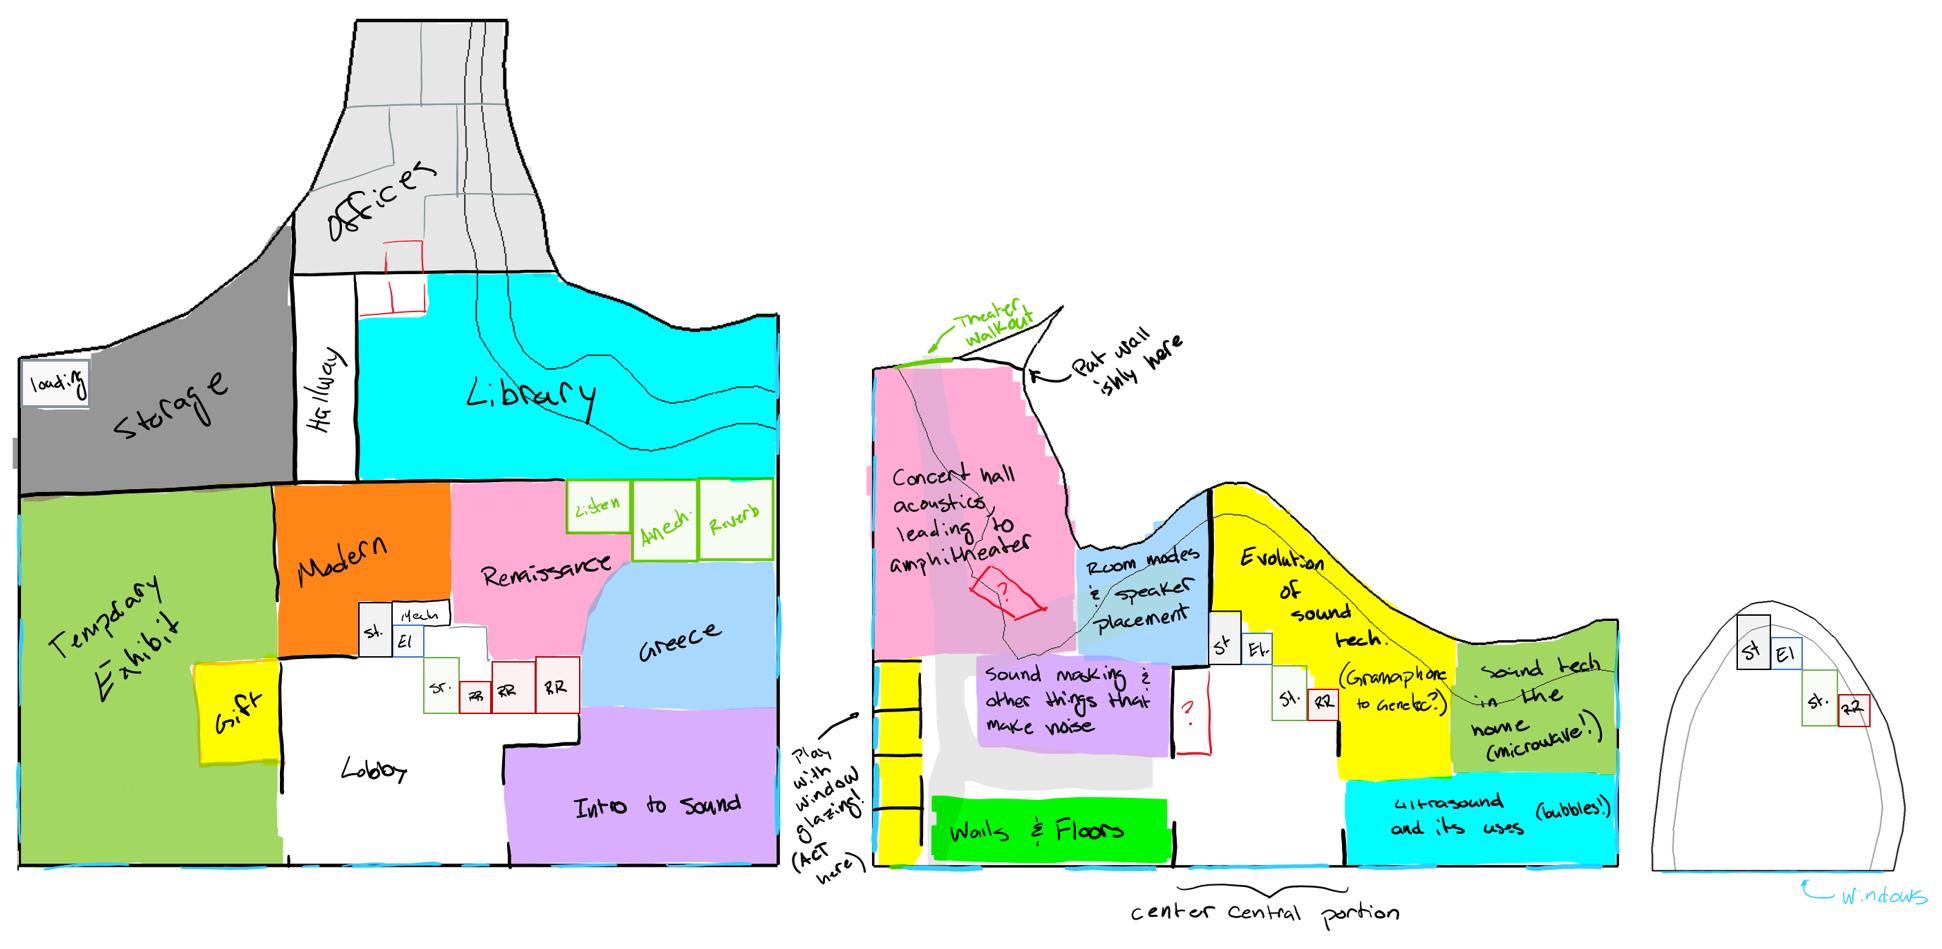 Offices
loading
Storage
Hallway
Library
Listen
Anech.
Reverb
Modern
Renaissance
Temporary
Exhibit
Mech
St.
El
Greece
St.
RR
RR
RR
Gift
Lobby
Intro to Sound
Theater
Walkout
Put wall
ishly here
Concert hall
acoustics,
leading to
amphitheater
?
Room modes
& speaker
placement
Evolution
of
sound
tech.
(Gramaphone
to Genelec?)
St
El.
St.
RR
Sound masking &
other things that
make noise
?
Sound tech
in the
home
(microwave!)
Play
with
window
glazing!
(ACT
here)
Walls & Floors
Ultrasound
and its uses
(bubbles!)
center central portion
St
El
St.
RR
Windows